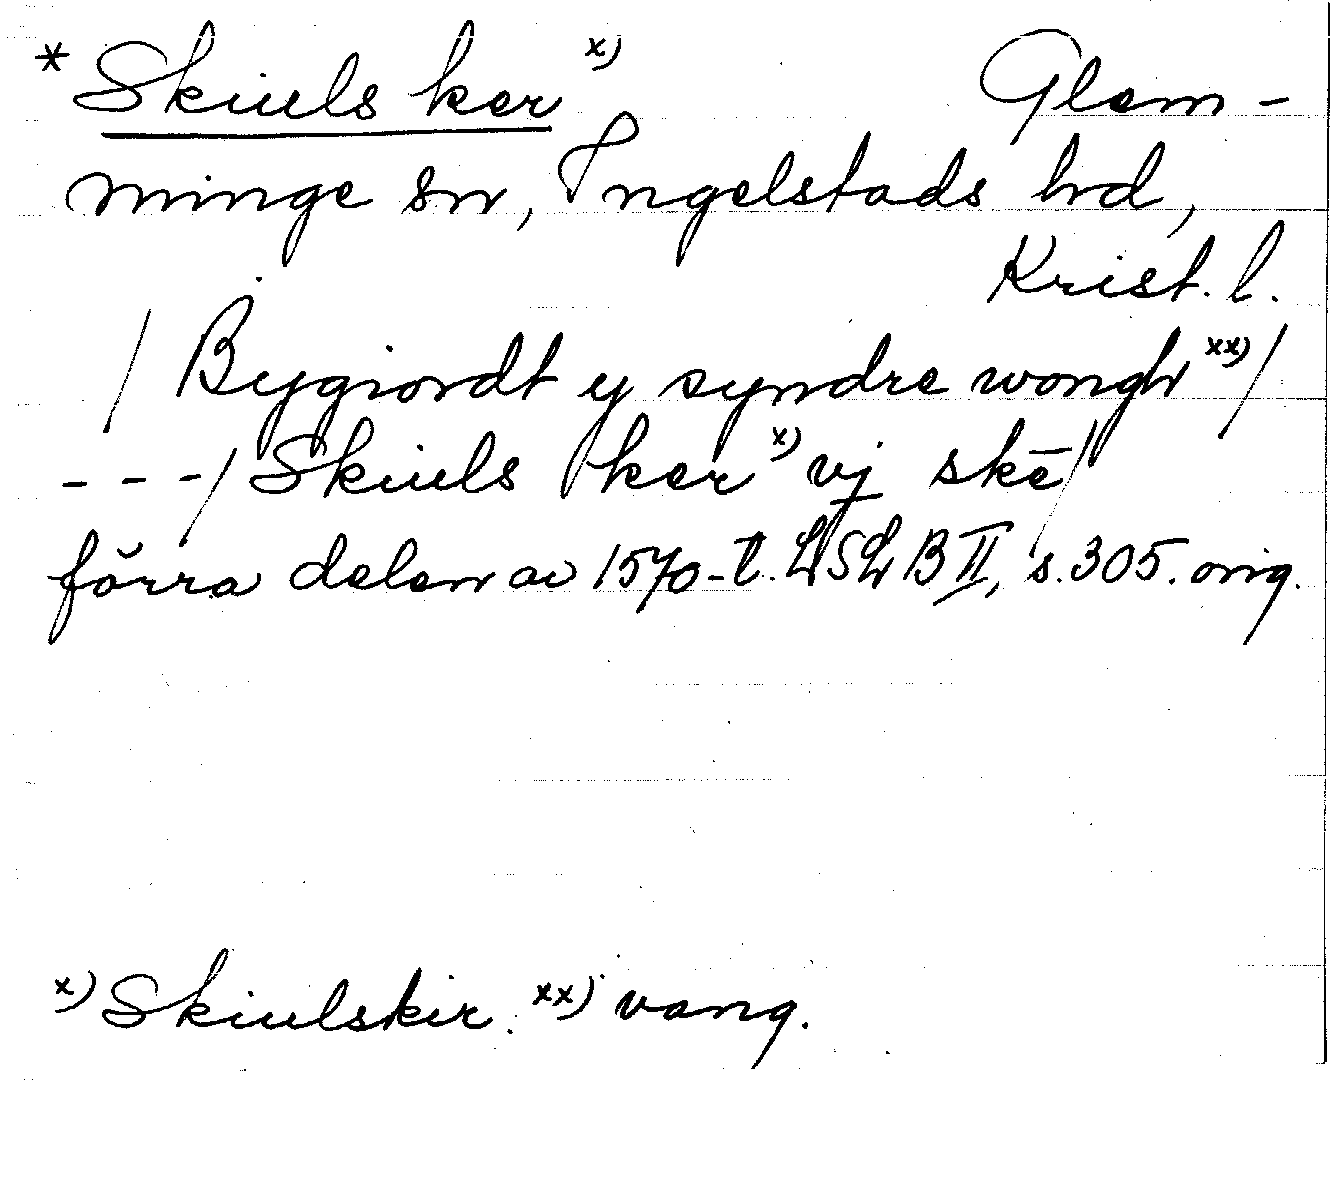 * Skiuls ker x) Glem-
minge sn, Ingelstads hd,
Krist. l.
/ Bygiordt y syndre wongh xx) /
- - - / Skiuls ker x) vj skē /
förra delen av 1570-t. LSLB II, s. 305. orig.
x) Skiulskir. xx) vang.